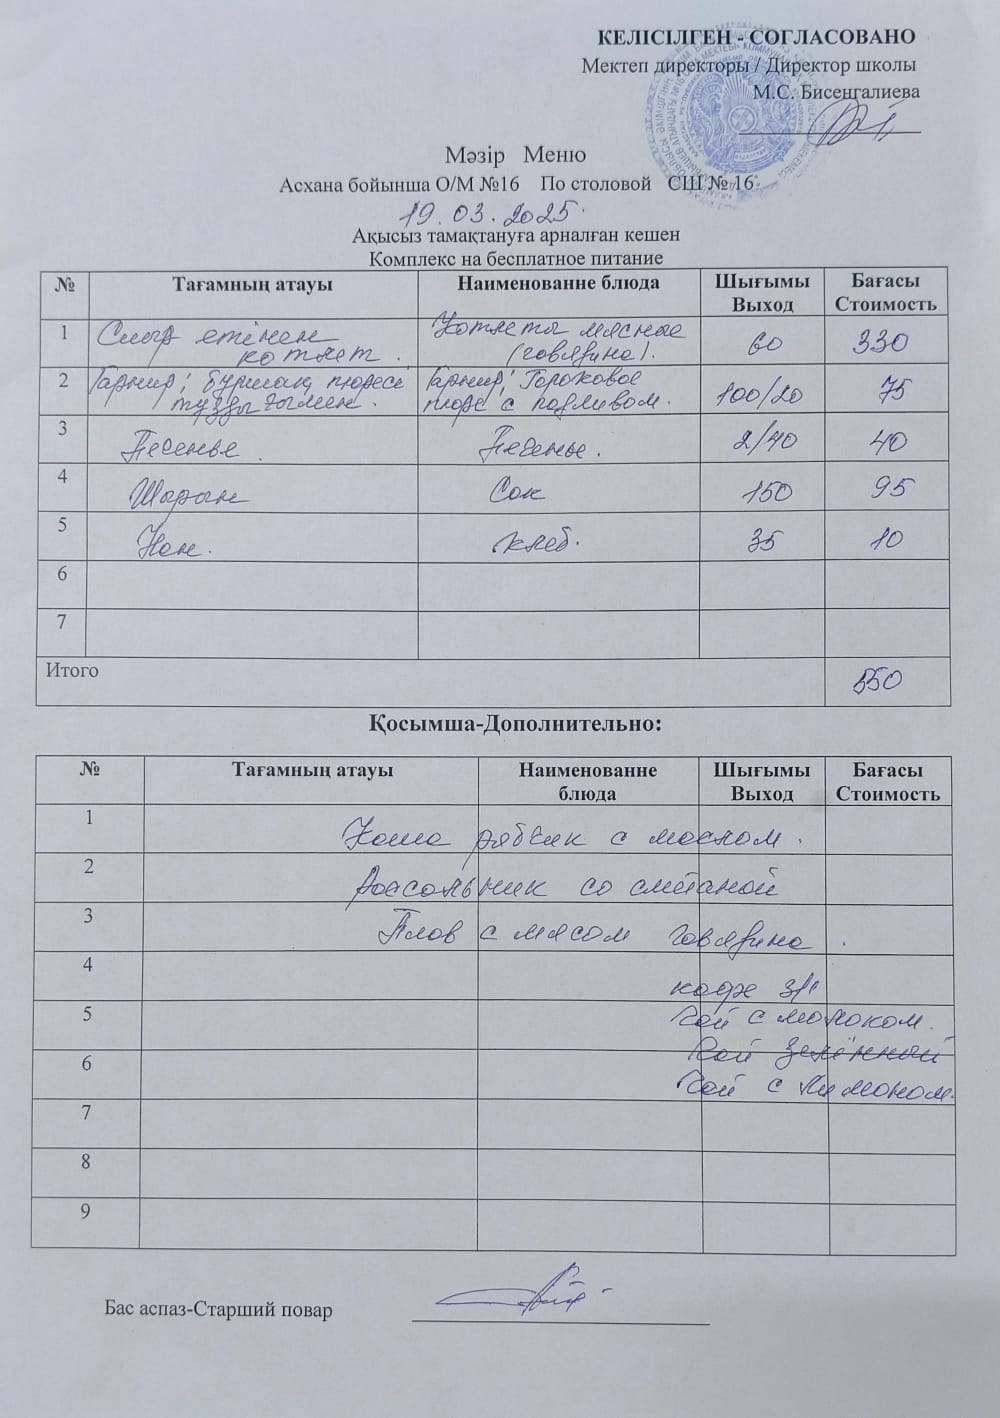 КЕЛІСІЛГЕН - СОГЛАСОВАНО
Мектеп директоры / Директор школы
М.С. Бисенгалиева
Мәзір Меню
Асхана бойынша О/М №16 По столовой СШ № 16
19.03.2025
Ақысыз тамақтануға арналған кешен
Комплекс на бесплатное питание
№ Тағамның атауы Наименованне блюда Шығымы Выход Бағасы Стоимость
1 Сиыр етінен котлет. Котлеты мясные (говядина). 60 330
2 Гарнир; бұршақ пюресі тұздығымен. Гарнир; Гороховое пюре с подливом. 100/20 75
3 Печенье. Печенье. 2/40 40
4 Шырын Сок 150 95
5 Нан. хлеб. 35 10
6
7
Итого 550
Қосымша-Дополнительно:
№ Тағамның атауы Наименованне блюда Шығымы Выход Бағасы Стоимость
1 Каша рябчик с маслом.
2 Рассольник со сметаной
3 Плов с мясом говядина.
4 кофе 3/1
5 Чай с молоком.
Чай зелённый
6 Чай с лимоном.
7
8
9
Бас аспаз-Старший повар